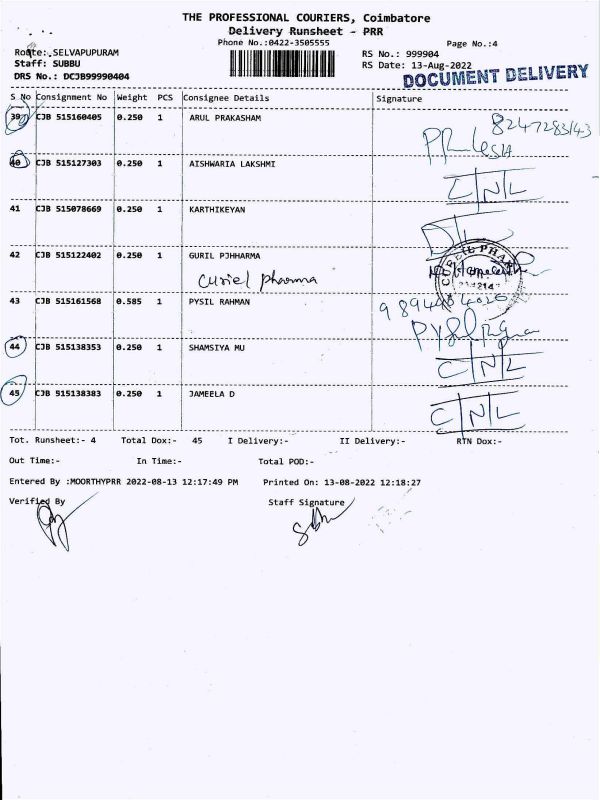 THE PROFESSIONAL COURIERS, Coimbatore
Delivery Runsheet - PRR
Phone No.:0422-3505555
Page No.:4
Route:.SELVAPUPURAM
RS No.: 999904
Staff: SUBBU
RS Date: 13-Aug-2022
DRS No.: DCJB99990404
DOCUMENT DELIVERY
S No Consignment No Weight PCS Consignee Details Signature
39 CJB 515160405 0.250 1 ARUL PRAKASHAM
40 CJB 515127303 0.250 1 AISHWARIA LAKSHMI
C/N/L
41 CJB 515078669 0.250 1 KARTHIKEYAN
D/L
42 CJB 515122402 0.250 1 GURIL PJHHARMA
Curiel pharma
43 CJB 515161568 0.585 1 PYSIL RAHMAN
44 CJB 515138353 0.250 1 SHAMSIYA MU
C/N/L
45 CJB 515138383 0.250 1 JAMEELA D
C/N/L
Tot. Runsheet:- 4 Total Dox:- 45 I Delivery:- II Delivery:- RTN Dox:-
Out Time:- In Time:- Total POD:-
Entered By :MOORTHYPRR 2022-08-13 12:17:49 PM Printed On: 13-08-2022 12:18:27
Verified By Staff Signature